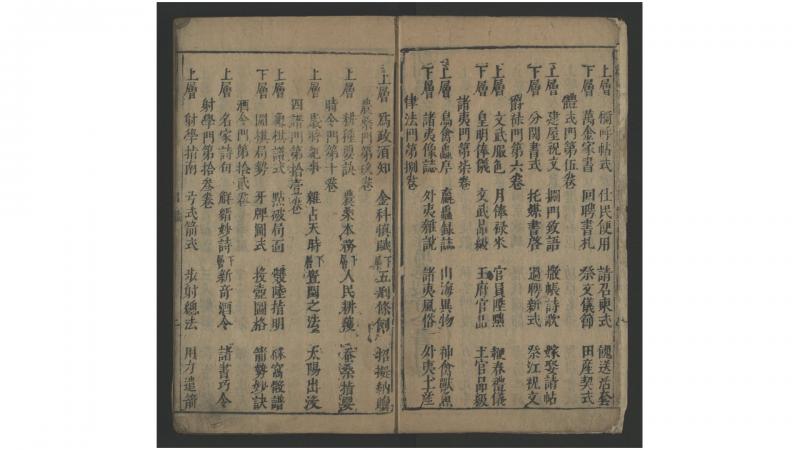 上層 稱呼帖式 仕民便用 請召柬式 餽送活套
下層 萬金家書 回聘書札 祭文儀節 田產契式
體式門第伍卷
上層 建屋祝文 門致語 徹帳詩歌 嫁娶請帖
下層 分關書式 托媒書啓 過聘新式 祭江祝文
爵祿門第六卷
上層 文武服色 月俸祿米 官員陞黜 鞭春禮儀
下層 皇明俸儀 文武品級 王府官品 王官品級
諸夷門第柒卷
上層 鳥禽蟲序 蠃蟲錄誌 山海異物 神禽獸魚
下層 諸夷像誌 外夷雜說 諸夷風俗 外夷土產
律法門第捌卷
上層 為政須知 金科慎賦 下五刑條例 招擬納贖
農桑門第玖卷
上層 耕種要訣 農桑本務 下層人民耕穫 蠶桑
時令門第十卷
上層 雜占天時 下層置閏之法 太陽出沒
四譜門第拾壹卷
上層 象棋譜式 點破局面 雙陸指明 窩骰譜
下層 圍棋局勢 牙牌圖式 投壺圖格 箭勢妙訣
酒令門第拾貳卷
上層 名家詩句 解縉妙詩 下層新奇酒令 諸書巧令
射學門第拾叁卷
上層 射學指南 弓式箭式 步射總法 用力遣箭